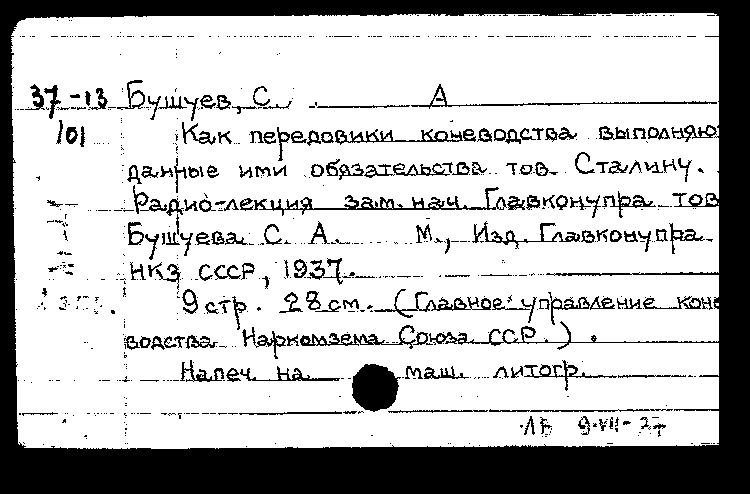 37-13 Бушуев, С. А
101 Как передовики коневодства выполняю
данные ими обязательства тов. Сталину.
Радио-лекция зам. нач. Главконупра тов
Бушуева С. А. М., Изд. Главконупра
НКЗ СССР, 1937.
9 стр. 28 см. (Главное управление коне
водства Наркомзема Союза ССР.).
Напеч. на маш. литогр.
ЛВ 9-VII-37